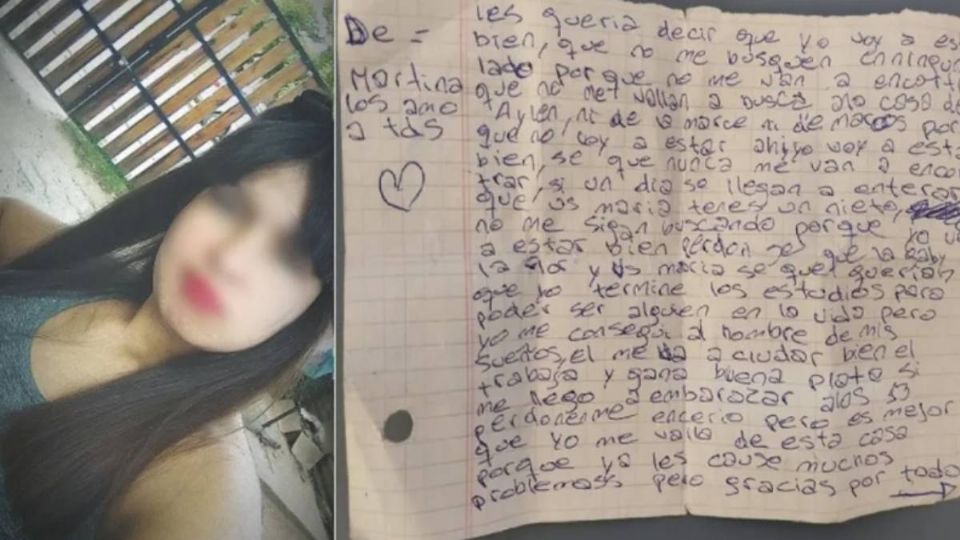 De =
Martina
los amo
a tds
les queria decir que yo voy a es
bien, que no me busquen enningun
lado porque no me van a encott
que no met vallan a busca ala casa de
Aylen, ni de la marce ni de marcos por
que no voy a estar ahi yo voy a esta
bien, se que nunca me van a encon
trar, si un dia se llegan a enterar
que, vs maria tenes un nieto,
no me sigan buscando porque yo vo
a estar bien perdon se que la gaby
la flor y vs maria se que querian
que yo termine los estudios para
poder ser alguien en la vida pero
yo me consegui al hombre de mis
sueños, el me va a ciudar bien el
trabaja y gana buena plata si
me llego a embarazar alos 13
perdonenme encerio pero es mejor
que yo me valla de esta casa
porque ya les cause muchos
problemass pero gracias por todo